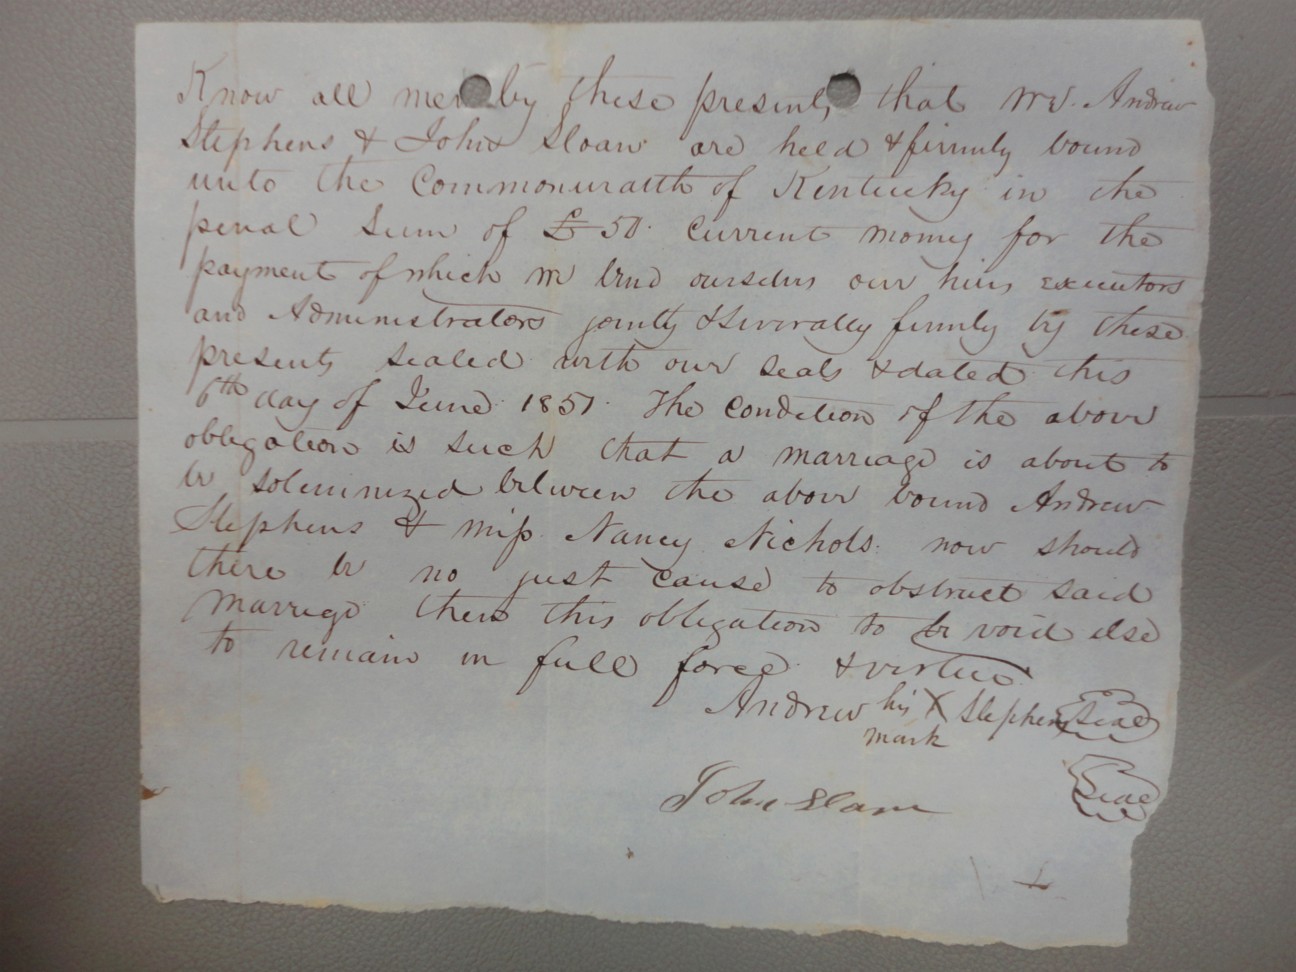 Know all men by these presents that we Andrew
Stephens & John Sloan are held & firmly bound
unto the Commonwealth of Kentucky in the
penal sum of £50 current money for the
payment of which we bind ourselves our heirs executors
and Administrators jointly & severally firmly by these
presents sealed with our seals & dated this
6th day of June 1851. The condition of the above
obligation is such that a marriage is about to
be solemnized between the above bound Andrew
Stephens & miss Nancy Nichols. now should
there be no just cause to obstruct said
marrige then this obligation to be void else
to remain in full force & virtue
Andrew his X Stephens Seal
mark
John Sloan Seal